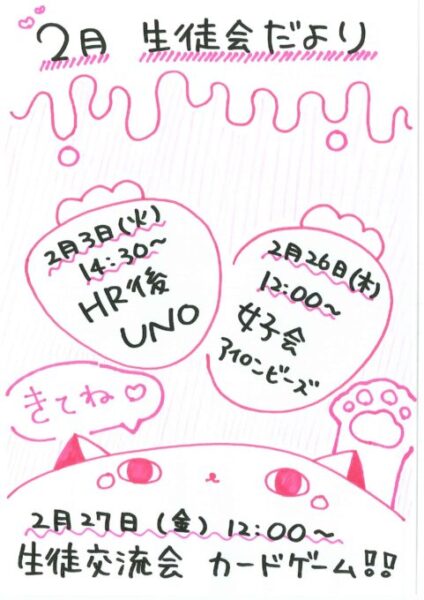 2月 生徒会だより
2月3日(火)
14:30~
HR後
UNO
2月26日(木)
12:00~
女子会
アイロンビーズ
きてね♡
2月27日(金) 12:00~
生徒交流会 カードゲーム!!